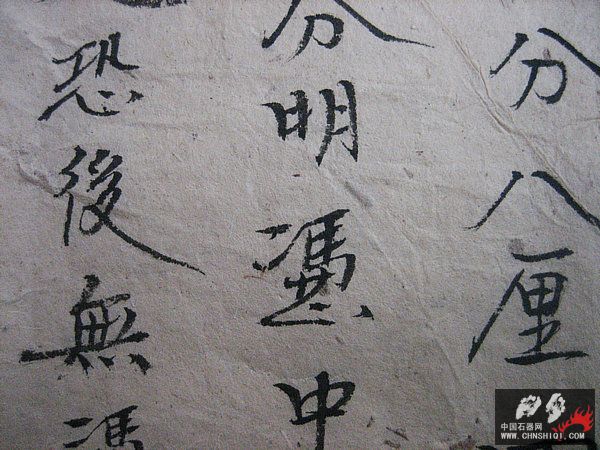 分八厘
分明憑中
恐後無憑
中国石器网
WWW.CHNSHIQI.COM